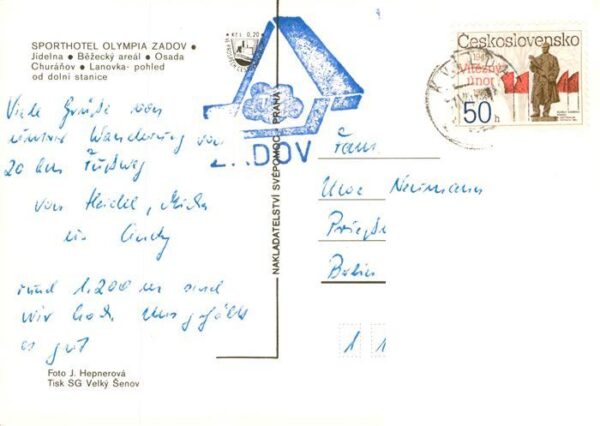 SPORTHOTEL OLYMPIA ZADOV •
Jídelna • Běžecký areál • Osada
Churáňov • Lanovka - pohled
od dolní stanice
Viele Grüße von
unserer Wanderung von
20 km Fußweg
von Heidel,
u. Andy
rund 1.200 m sind
wir hoch. Uns gefällt
es gut
Foto J. Hepnerová
Tisk SG Velký Šenov
NAKLADATELSTVÍ SVÉPOMOC PRAHA
Kčs 0,20
DOV
Československo
Vítězný
únor
50 h
Fam.
Uwe Neumann
Berlin
1 1